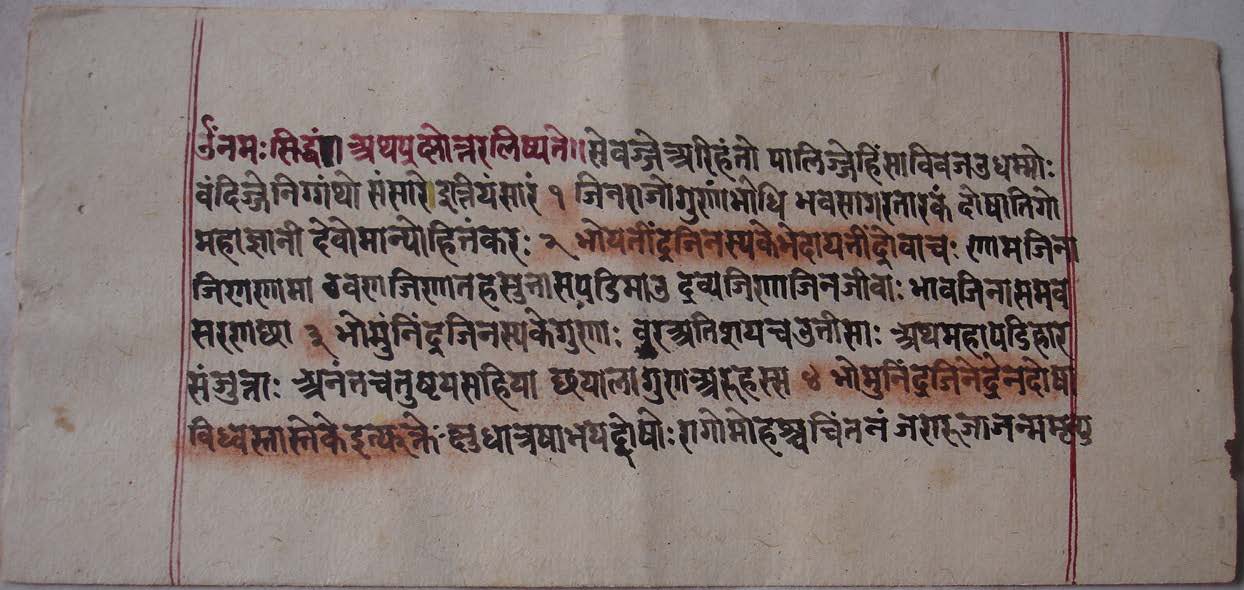 ॐनमःसिद्धं अथप्रश्नोत्तरलिष्यते॥सेवज्जेअरिहंतो पालिज्जेहिंसाविवजउधम्मोः
वंदिज्जेनिग्गंथो संसारेदुत्तियंसारं १ जिनराजोगुरांभोधि भवसागरतारकं दोषातिगो
महाज्ञानी देवोमान्योहितंकरः २ भोयतींद्रजिनस्यकेभेदायतींद्रोवाचः णामजिना
जिणणामा ठवणजिणातहसुतासपडिमाउ दव्यजिणाजिनजीवाः भावजिनासमव
सरणछा ३ भोमुंनिंद्रजिनस्यकेगुणाः वुरअतिशयचउतीसाः अथमहापडिहार
संजुत्ताः अनंतचतुष्टयसहिया छयालागुणअरूहस्स ४ भोमुनिंद्रजिनेंद्रेनदोषा
विध्वस्तास्तेकेइत्फक्ते क्षुधात्रषाभयद्वेषोः रागोमोहश्चचिंतनं जरारूजाजन्ममृत्यु